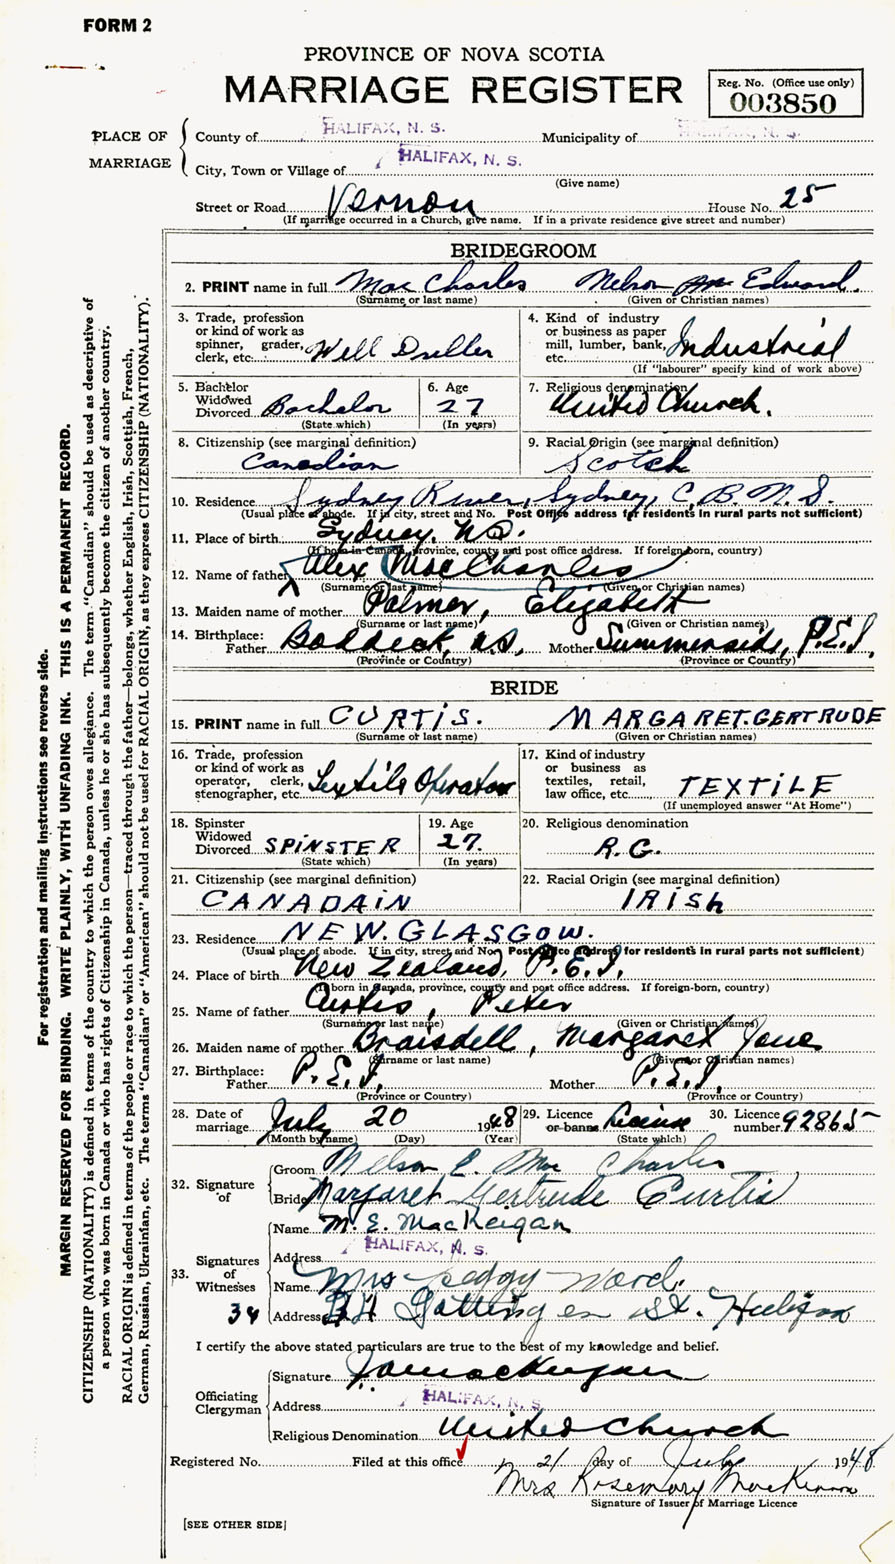 FORM 2
PROVINCE OF NOVA SCOTIA
MARRIAGE REGISTER
Reg. No. (Office use only)
003850
PLACE OF MARRIAGE
County of HALIFAX, N. S. Municipality of HALIFAX, N. S.
City, Town or Village of HALIFAX, N. S.
(Give name)
Street or Road Vernon House No. 25
(If marriage occurred in a Church, give name. If in a private residence give street and number)
BRIDEGROOM
2. PRINT name in full Mac Charles Nelson Edward.
(Surname or last name) (Given or Christian names)
3. Trade, profession or kind of work as spinner, grader, clerk, etc. Well Driller
4. Kind of industry or business as paper mill, lumber, bank, etc. Industrial
(If "labourer" specify kind of work above)
5. Bachelor Widowed Divorced Bachelor
(State which)
6. Age 27
(In years)
7. Religious denomination United Church.
8. Citizenship (see marginal definition) Canadian
9. Racial Origin (see marginal definition) Scotch
10. Residence Sydney River, Sydney, C.B. N.S.
(Usual place of abode. If in city, street and No. Post Office address for residents in rural parts not sufficient)
11. Place of birth Sydney, N.S.
(If born in Canada, province, county and post office address. If foreign-born, country)
12. Name of father Alex MacCharles
(Surname or last name) (Given or Christian names)
13. Maiden name of mother Palmer, Elizabeth
(Surname or last name) (Given or Christian names)
14. Birthplace: Father Baddeck, N.S. Mother Summerside, P.E.I.
(Province or Country) (Province or Country)
BRIDE
15. PRINT name in full CURTIS. MARGARET.GERTRUDE
(Surname or last name) (Given or Christian names)
16. Trade, profession or kind of work as operator, clerk, stenographer, etc. Textile Operator
17. Kind of industry or business as textiles, retail, law office, etc. TEXTILE
(If unemployed answer "At Home")
18. Spinster Widowed Divorced SPINSTER
(State which)
19. Age 27.
(In years)
20. Religious denomination R.C.
21. Citizenship (see marginal definition) CANADAIN
22. Racial Origin (see marginal definition) IRISH
23. Residence NEW.GLASGOW.
(Usual place of abode. If in city, street and No. Post Office address for residents in rural parts not sufficient)
24. Place of birth New Zealand, P.E.I.
(If born in Canada, province, county and post office address. If foreign-born, country)
25. Name of father Curtis, Peter
(Surname or last name) (Given or Christian names)
26. Maiden name of mother Braisdell, Margaret Jane
(Surname or last name) (Given or Christian names)
27. Birthplace: Father P.E.I. Mother P.E.I.
(Province or Country) (Province or Country)
28. Date of marriage July 20 1948
(Month by name) (Day) (Year)
29. Licence or banns License
(State which)
30. Licence number 92865
32. Signature of
Groom Nelson E. Mac Charles
Bride Margaret Gertrude Curtis
33. Signatures of Witnesses
Name M. E. MacKeigan
Address HALIFAX, N. S.
Name Mrs Peggy Ward.
34 Address Gottingen St. Halifax
I certify the above stated particulars are true to the best of my knowledge and belief.
Officiating Clergyman
Signature
Address HALIFAX, N. S.
Religious Denomination United Church
Registered No. Filed at this office 21 day of July 1948
Mrs Rosemary MacKinnon
Signature of Issuer of Marriage Licence
[SEE OTHER SIDE]
For registration and mailing instructions see reverse side.
MARGIN RESERVED FOR BINDING. WRITE PLAINLY, WITH UNFADING INK. THIS IS A PERMANENT RECORD.
CITIZENSHIP (NATIONALITY) is defined in terms of the country to which the person owes allegiance. The term "Canadian" should be used as descriptive of
a person who was born in Canada or who has rights of Citizenship in Canada, unless he or she has subsequently become the citizen of another country.
RACIAL ORIGIN is defined in terms of the people or race to which the person—traced through the father—belongs, whether English, Irish, Scottish, French,
German, Russian, Ukrainian, etc. The terms "Canadian" or "American" should not be used for RACIAL ORIGIN, as they express CITIZENSHIP (NATIONALITY).